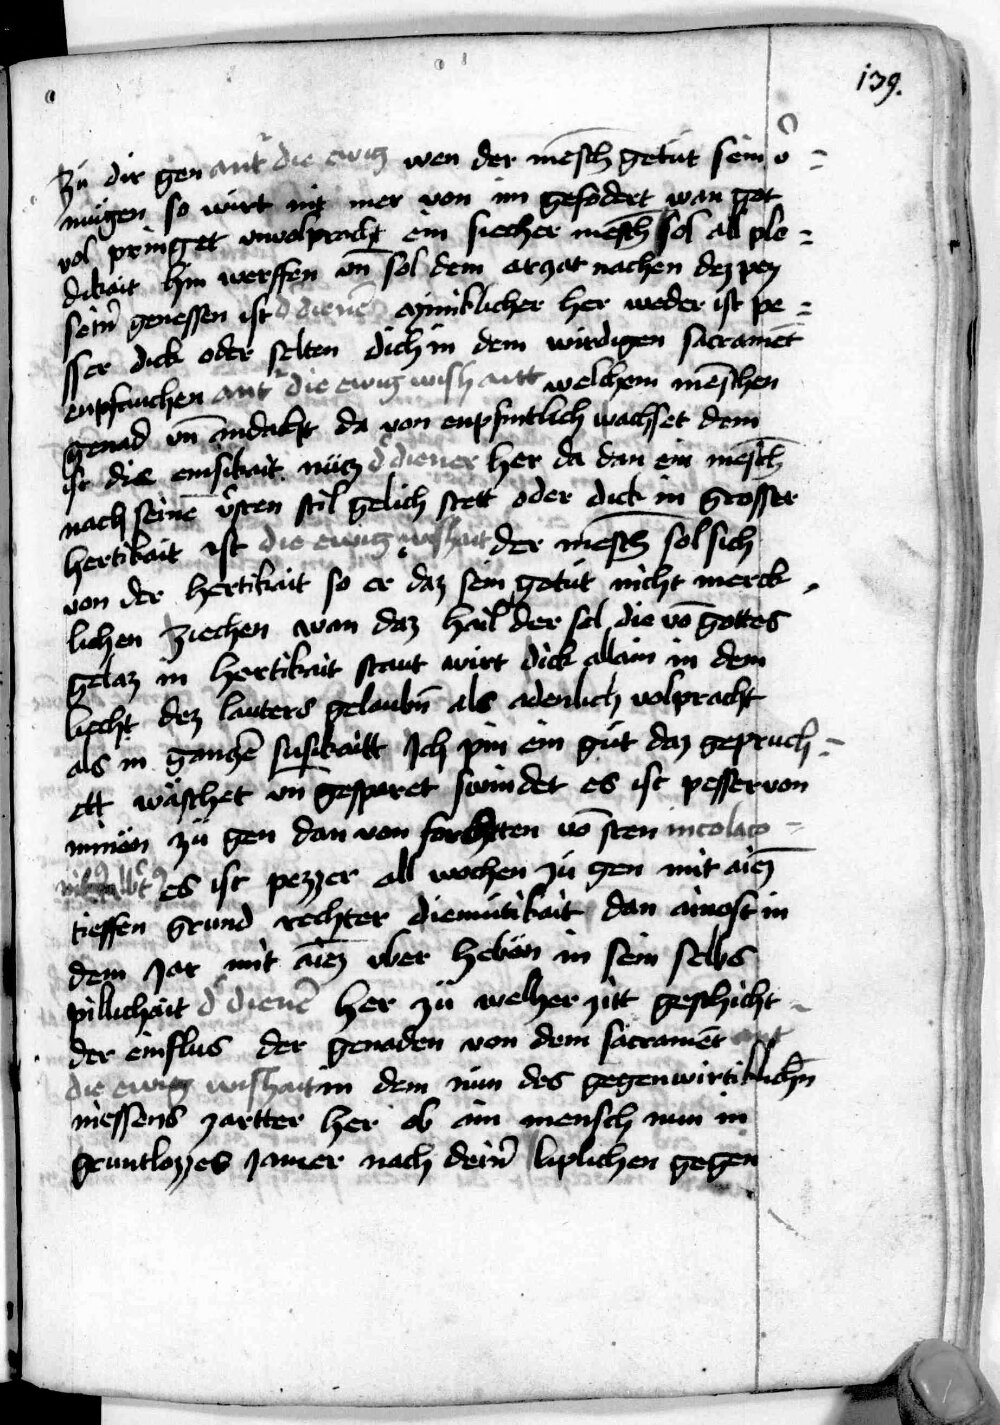 139.
zu dir gen ant die ewig wen der mēsch getüt sein v =
mügen so wirt nit mer von im gefodert wan got
vol pringet vnvolpracht ein siecher mēsch sol all plo =
dikait hin werffen vn̄ sol dem arczat nachen dez pey
sein̄ genessen ist d dienē mīniklicher her weder ist pe =
sser dick oder selten dich in dem wirdigen sacramēt
enpfauchen ant die ewig wish antt welchem mēschen
genad vn̄ andakt da von enpfintlich wachset dem
ist die emsikait nücz d diener her da dan ein mēsch
nach seinē üsten stil gelich stett oder dick in grosser
hertikait ist die ewig wishait der mēsch sol sich
von der hertikait so er daz sein getüt nicht merck
lichen ziechen wan daz hail der sel die vō gottes
gelaz in hertikait staut wirt dick allain in dem
liecht dez lauters gelaubn̄ als adenlich volpracht
als in ganczē susikaitt Ich pin ein güt daz gepruch =
ett wäschet vn gesparet swindet es ist pesser von
minnän zü gen dan von forchtten vō sten nicolaco =
es ist pezzer all wochen zü gen mit aiēz
tieffen grund rechter diemütikait dan ainost in
dem Jar mit aiēz vber hebän in sein selbs
pillichait d dienē her zü welher zitt geschicht
der einflus der genaden von dem sacramēt ant
die ewig wishait in dem nun des gegenwirtiklichn̄
niessens zartter her ob ain mensch nun in
gruntlozzes Jamer nach dein̄ liplichen gegen